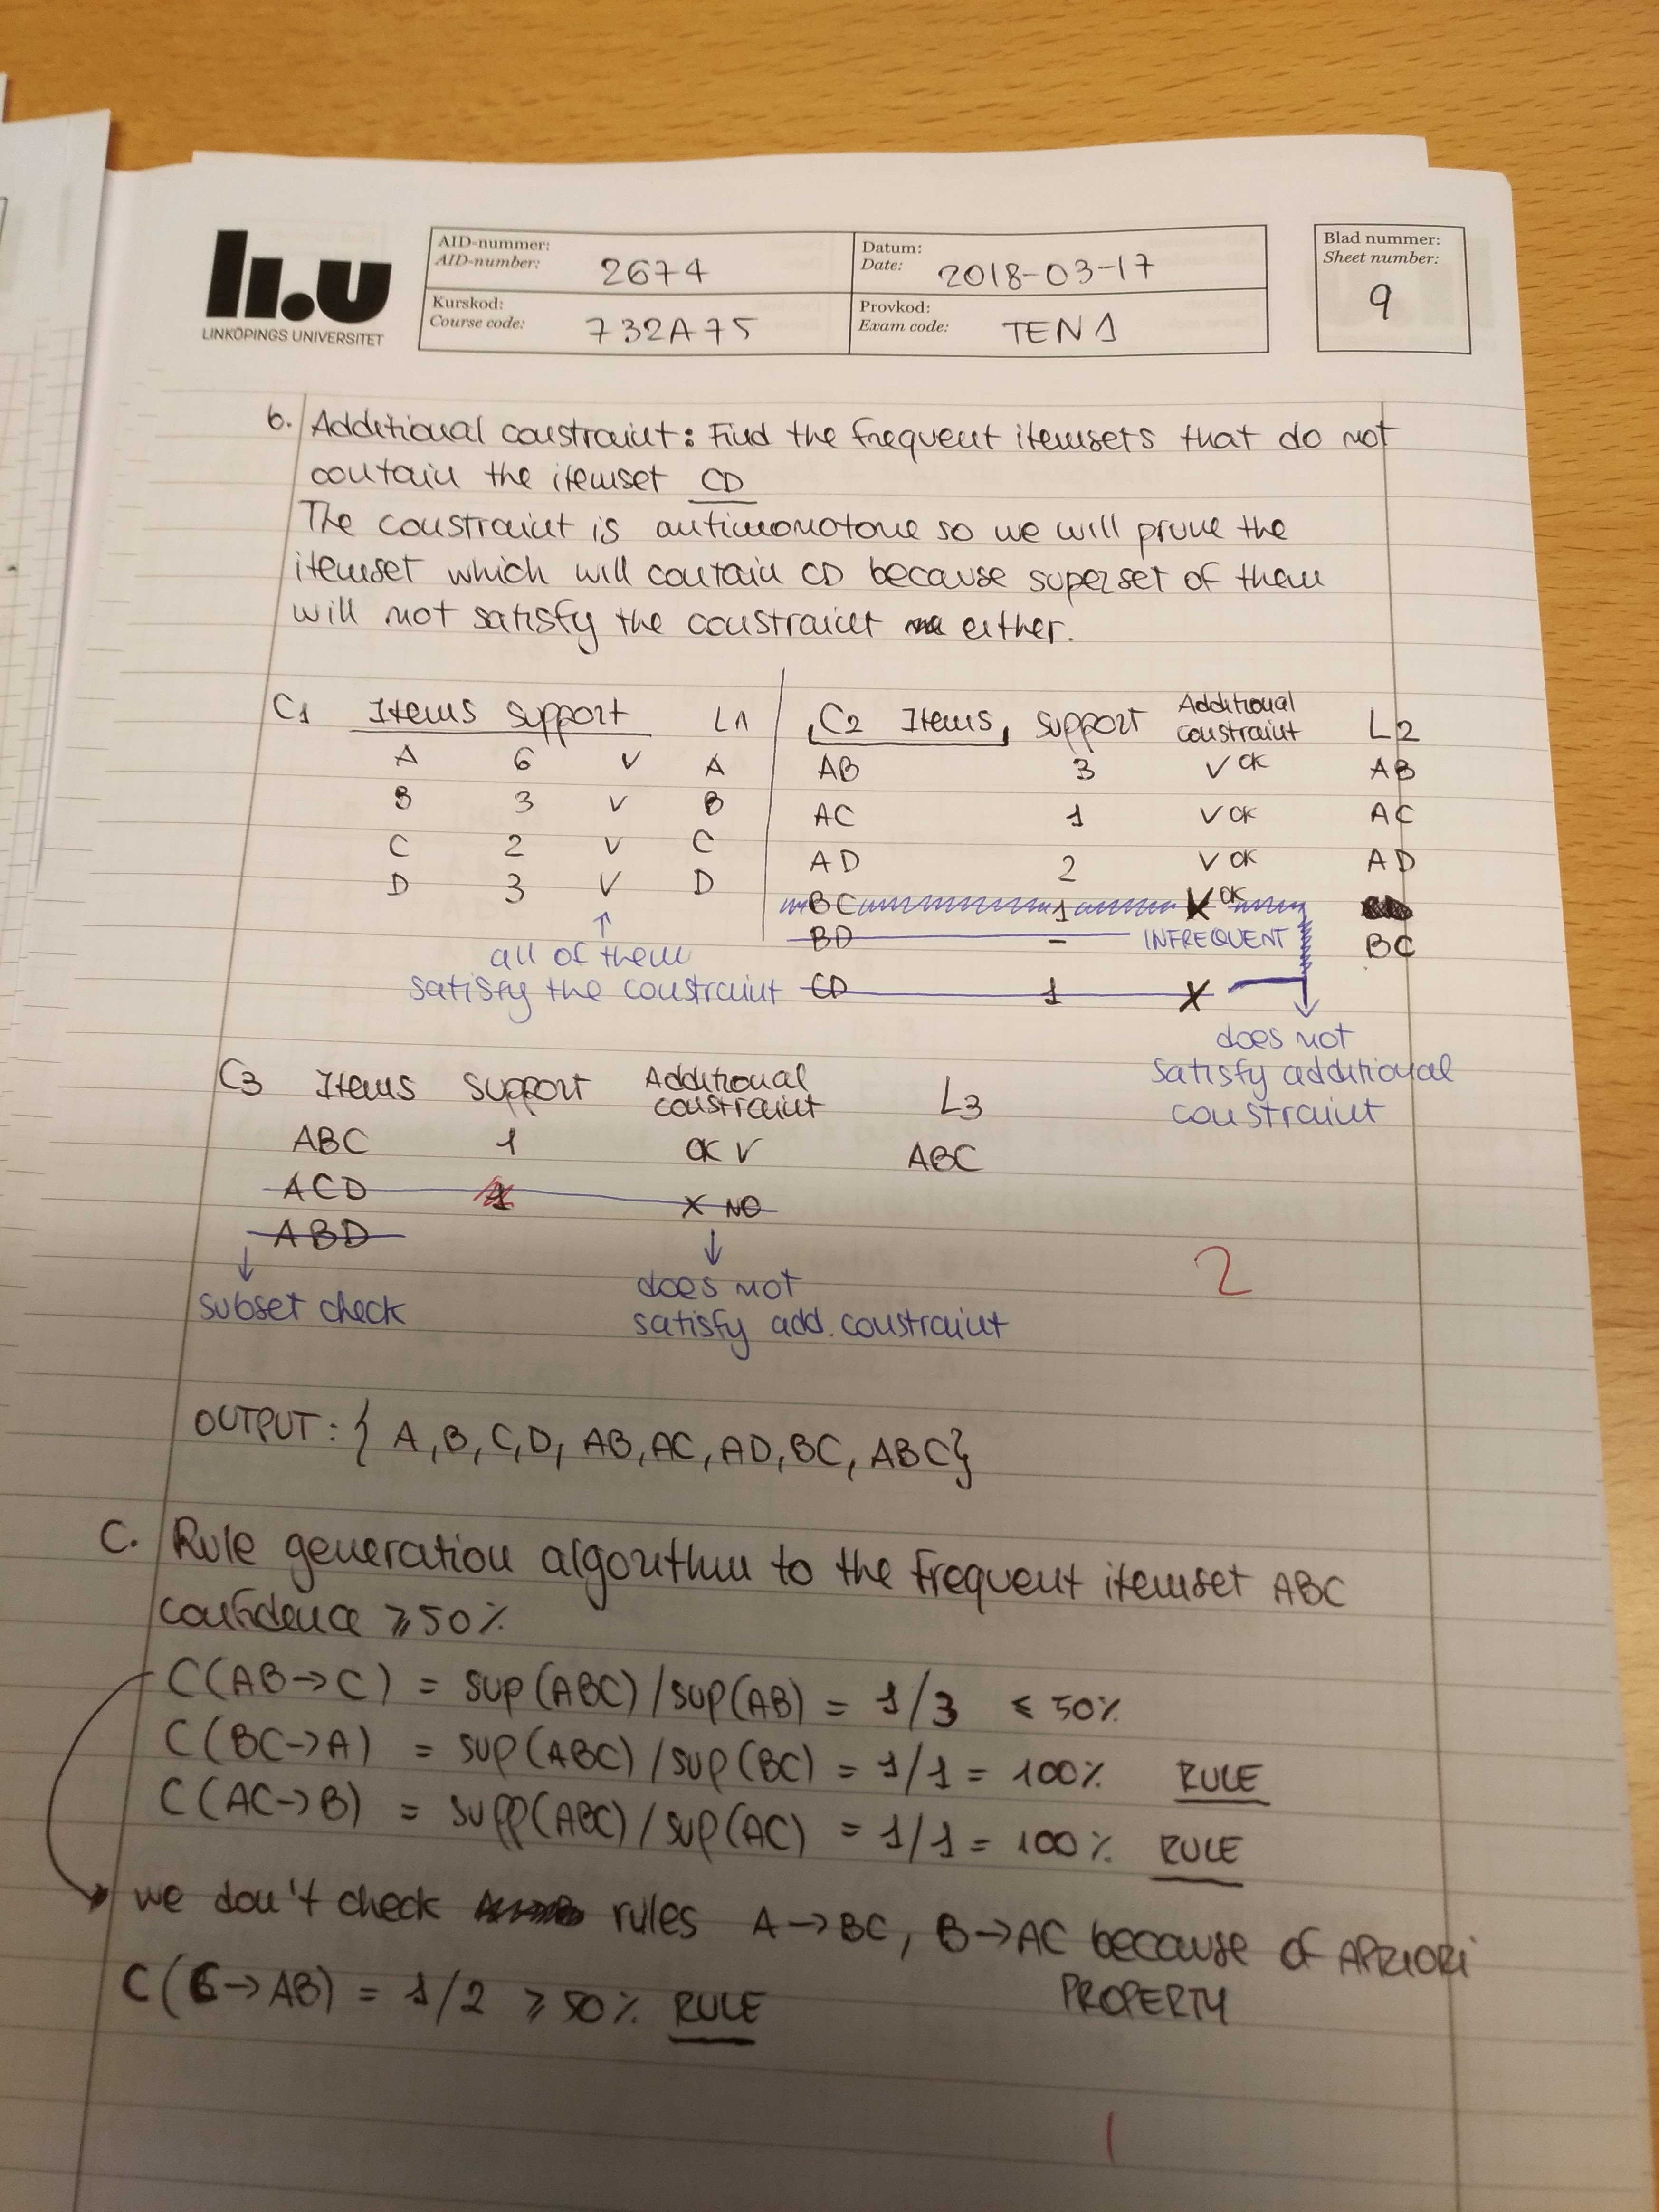 li.u
LINKÖPINGS UNIVERSITET
AID-nummer:
AID-number: 2674
Datum:
Date: 2018-03-17
Blad nummer:
Sheet number:
9
Kurskod:
Course code: 732A75
Provkod:
Exam code: TEN1
b. Additional constraint: Find the frequent itemsets that do not
contain the itemset CD
The constraint is antimonotone so we will prune the
itemset which will contain CD because superset of them
will not satisfy the constraint either.
C1 Items Support L1
A 6 V A
B 3 V B
C 2 V C
D 3 V D
↑
all of them
satisfy the constraint
C2 Items Support Additional constraint L2
AB 3 V OK AB
AC 1 V OK AC
AD 2 V OK AD
BC 1 V OK
BD - INFREQUENT BC
CD 1 X
does not
satisfy additional
constraint
C3 Items Support Additional constraint L3
ABC 1 OK V ABC
ACD 1 X NO
ABD
↓ ↓
subset check
does not
satisfy add. constraint
2
OUTPUT: { A, B, C, D, AB, AC, AD, BC, ABC}
C. Rule generation algorithm to the frequent itemset ABC
confidence ⩾ 50%
C(AB→C) = sup(ABC)/sup(AB) = 1/3 ⩽ 50%
C(BC→A) = sup(ABC)/sup(BC) = 1/1 = 100% RULE
C(AC→B) = supp(ABC)/sup(AC) = 1/1 = 100% RULE
we don't check rules A→BC, B→AC because of APRIORI
PROPERTY
C(C→AB) = 1/2 ⩾ 50% RULE
1